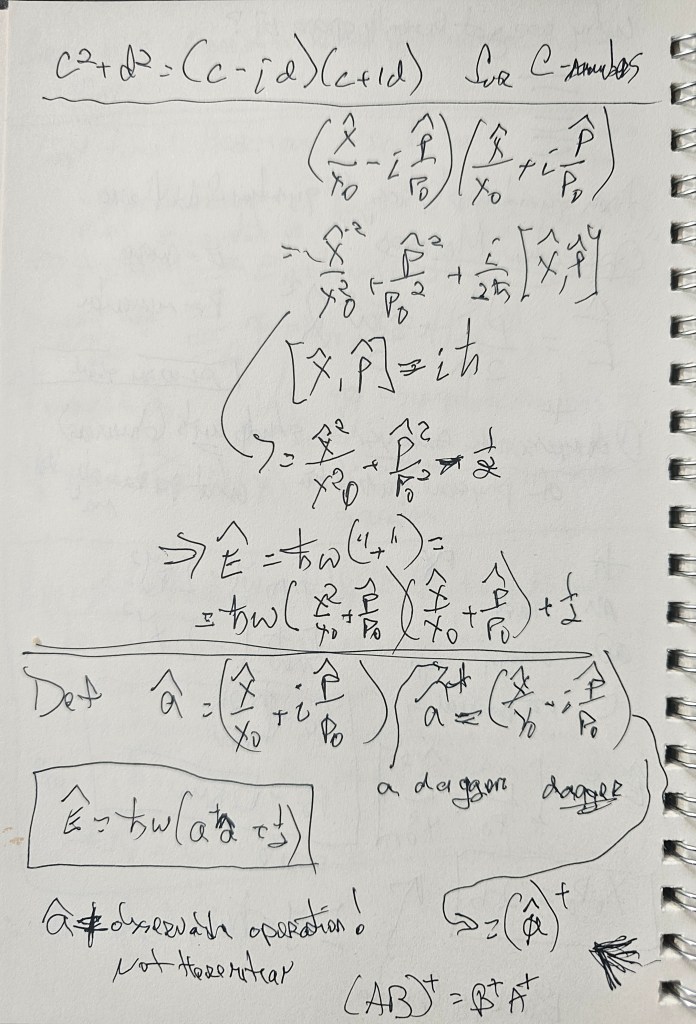 c²+d² = (c-id)(c+id) for C-numbers
(X̂/X₀ - i P̂/P₀)(X̂/X₀ + i P̂/P₀)
= X̂²/X₀² + P̂²/P₀² + i/2ħ [X̂, P̂]
[X̂, P̂] = iħ
= X̂²/X₀² + P̂²/P₀² - 1/2
⇒ Ê = ħω("+") =
= ħω(X²/X₀ + P̂/P₀)(X̂/X₀ + P̂/P₀) + 1/2
Def â = (X̂/X₀ + i P̂/P₀) â⁺ = (X̂/X₀ - i P̂/P₀)
a dagger dagger
Ê = ħω(a⁺â + 1/2)
â ≠ observable operation!
= (â)⁺
Not Hermitian
(AB)⁺ = B⁺A⁺